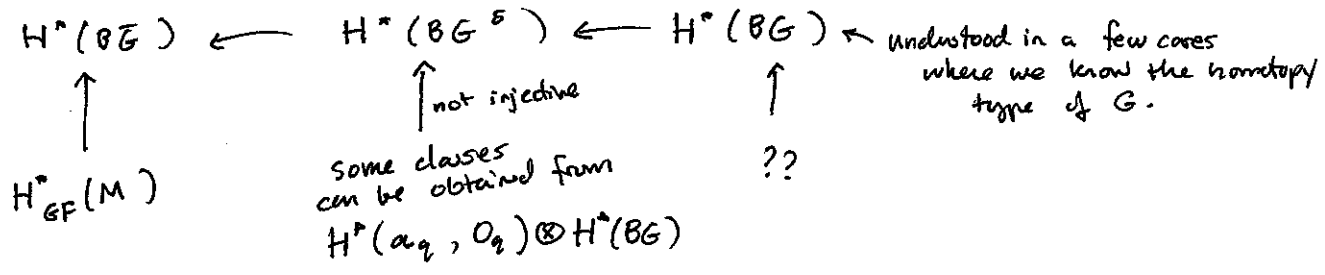 H*(BG̅) ← H*(BG^δ) ← H*(BG) ← understood in a few cases
where we know the homotopy
type of G.
↑ ↑ not injective ↑
some classes ??
H*_GF(M) can be obtained from
H*(𝔞_q, O_q) ⊗ H*(BG)